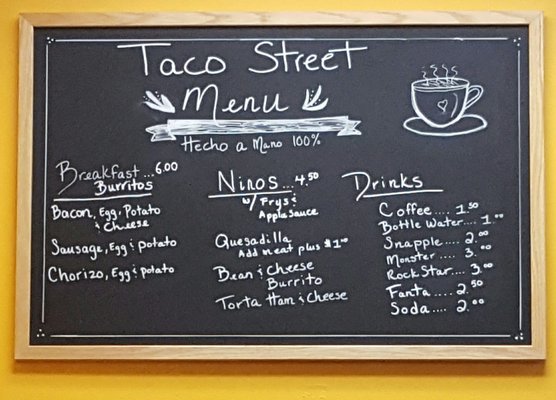 Taco Street
Menu
Hecho a Mano 100%
Breakfast...6.00
Burritos
Bacon, Egg, Potato
& cheese
Sausage, Egg & potato
Chorizo, Egg & potato
Ninos...4.50
w/ Frys &
Apple Sauce
Quesadilla
Add meat plus $1.00
Bean & Cheese
Burrito
Torta Ham & Cheese
Drinks
Coffee.... 1.50
Bottle Water... 1.00
Snapple.... 2.00
Monster.... 3.00
Rock Star.... 3.00
Fanta..... 2.50
Soda.... 2.00